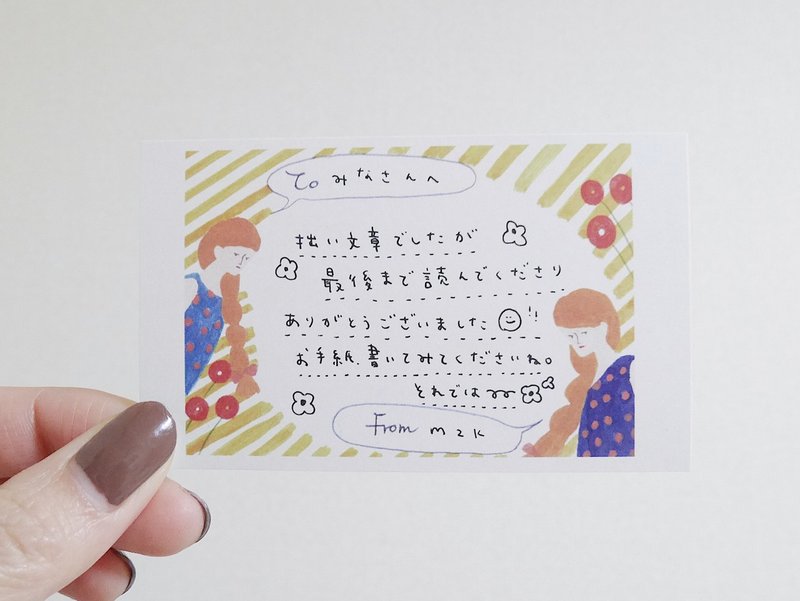 To みなさんへ
拙い文章でしたが
最後まで読んでくださり
ありがとうございました!!
お手紙、書いてみてくださいね。
それでは
From mzk